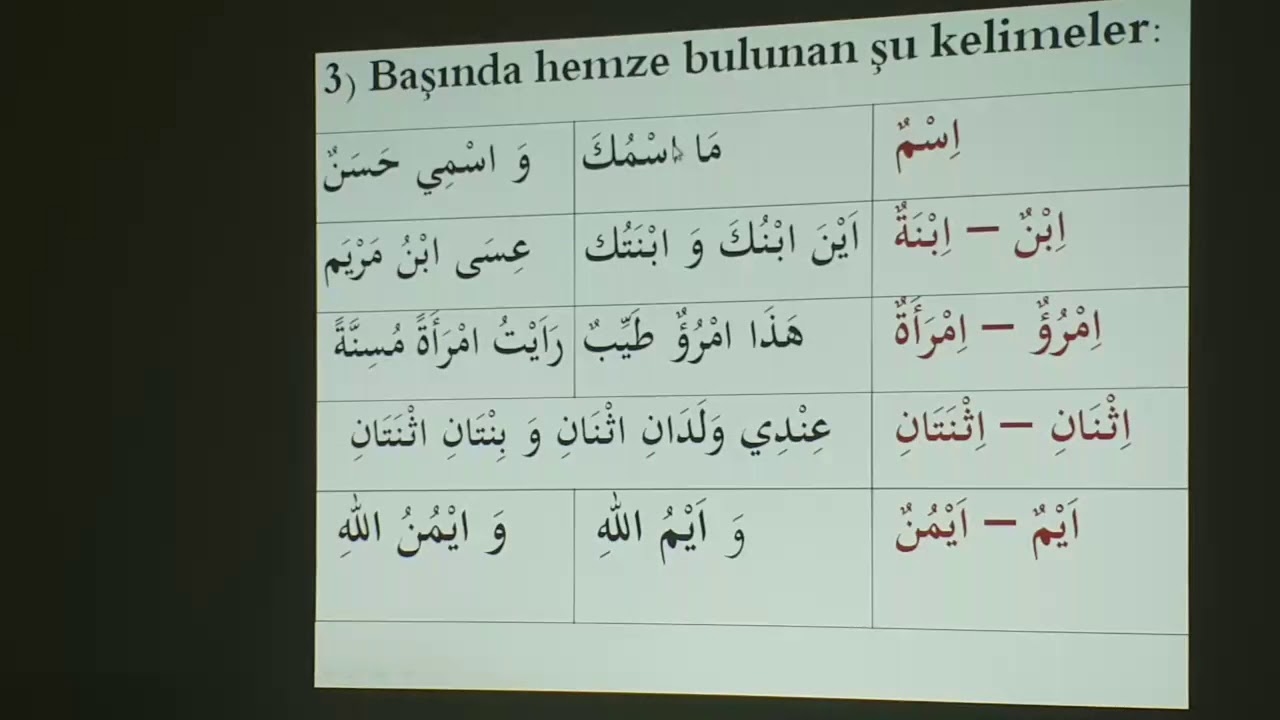 3) Başında hemze bulunan şu kelimeler:
اِسْمٌ
مَا اسْمُكَ
وَ اسْمِي حَسَنٌ
اِبْنٌ – اِبْنَةٌ
اَيْنَ ابْنُكَ وَ ابْنَتُك
عِسَى ابْنُ مَرْيَم
اِمْرُؤٌ – اِمْرَأَةٌ
هَذَا امْرُؤٌ طَيِّبٌ
رَاَيْتُ امْرَأَةً مُسِنَّةً
اِثْنَانِ – اِثْنَتَانِ
عِنْدِي وَلَدَانِ اثْنَانِ وَ بِنْتَانِ اثْنَتَانِ
اَيْمٌ – اَيْمُنٌ
وَ اَيْمُ اللهِ
وَ ايْمُنُ اللهِ